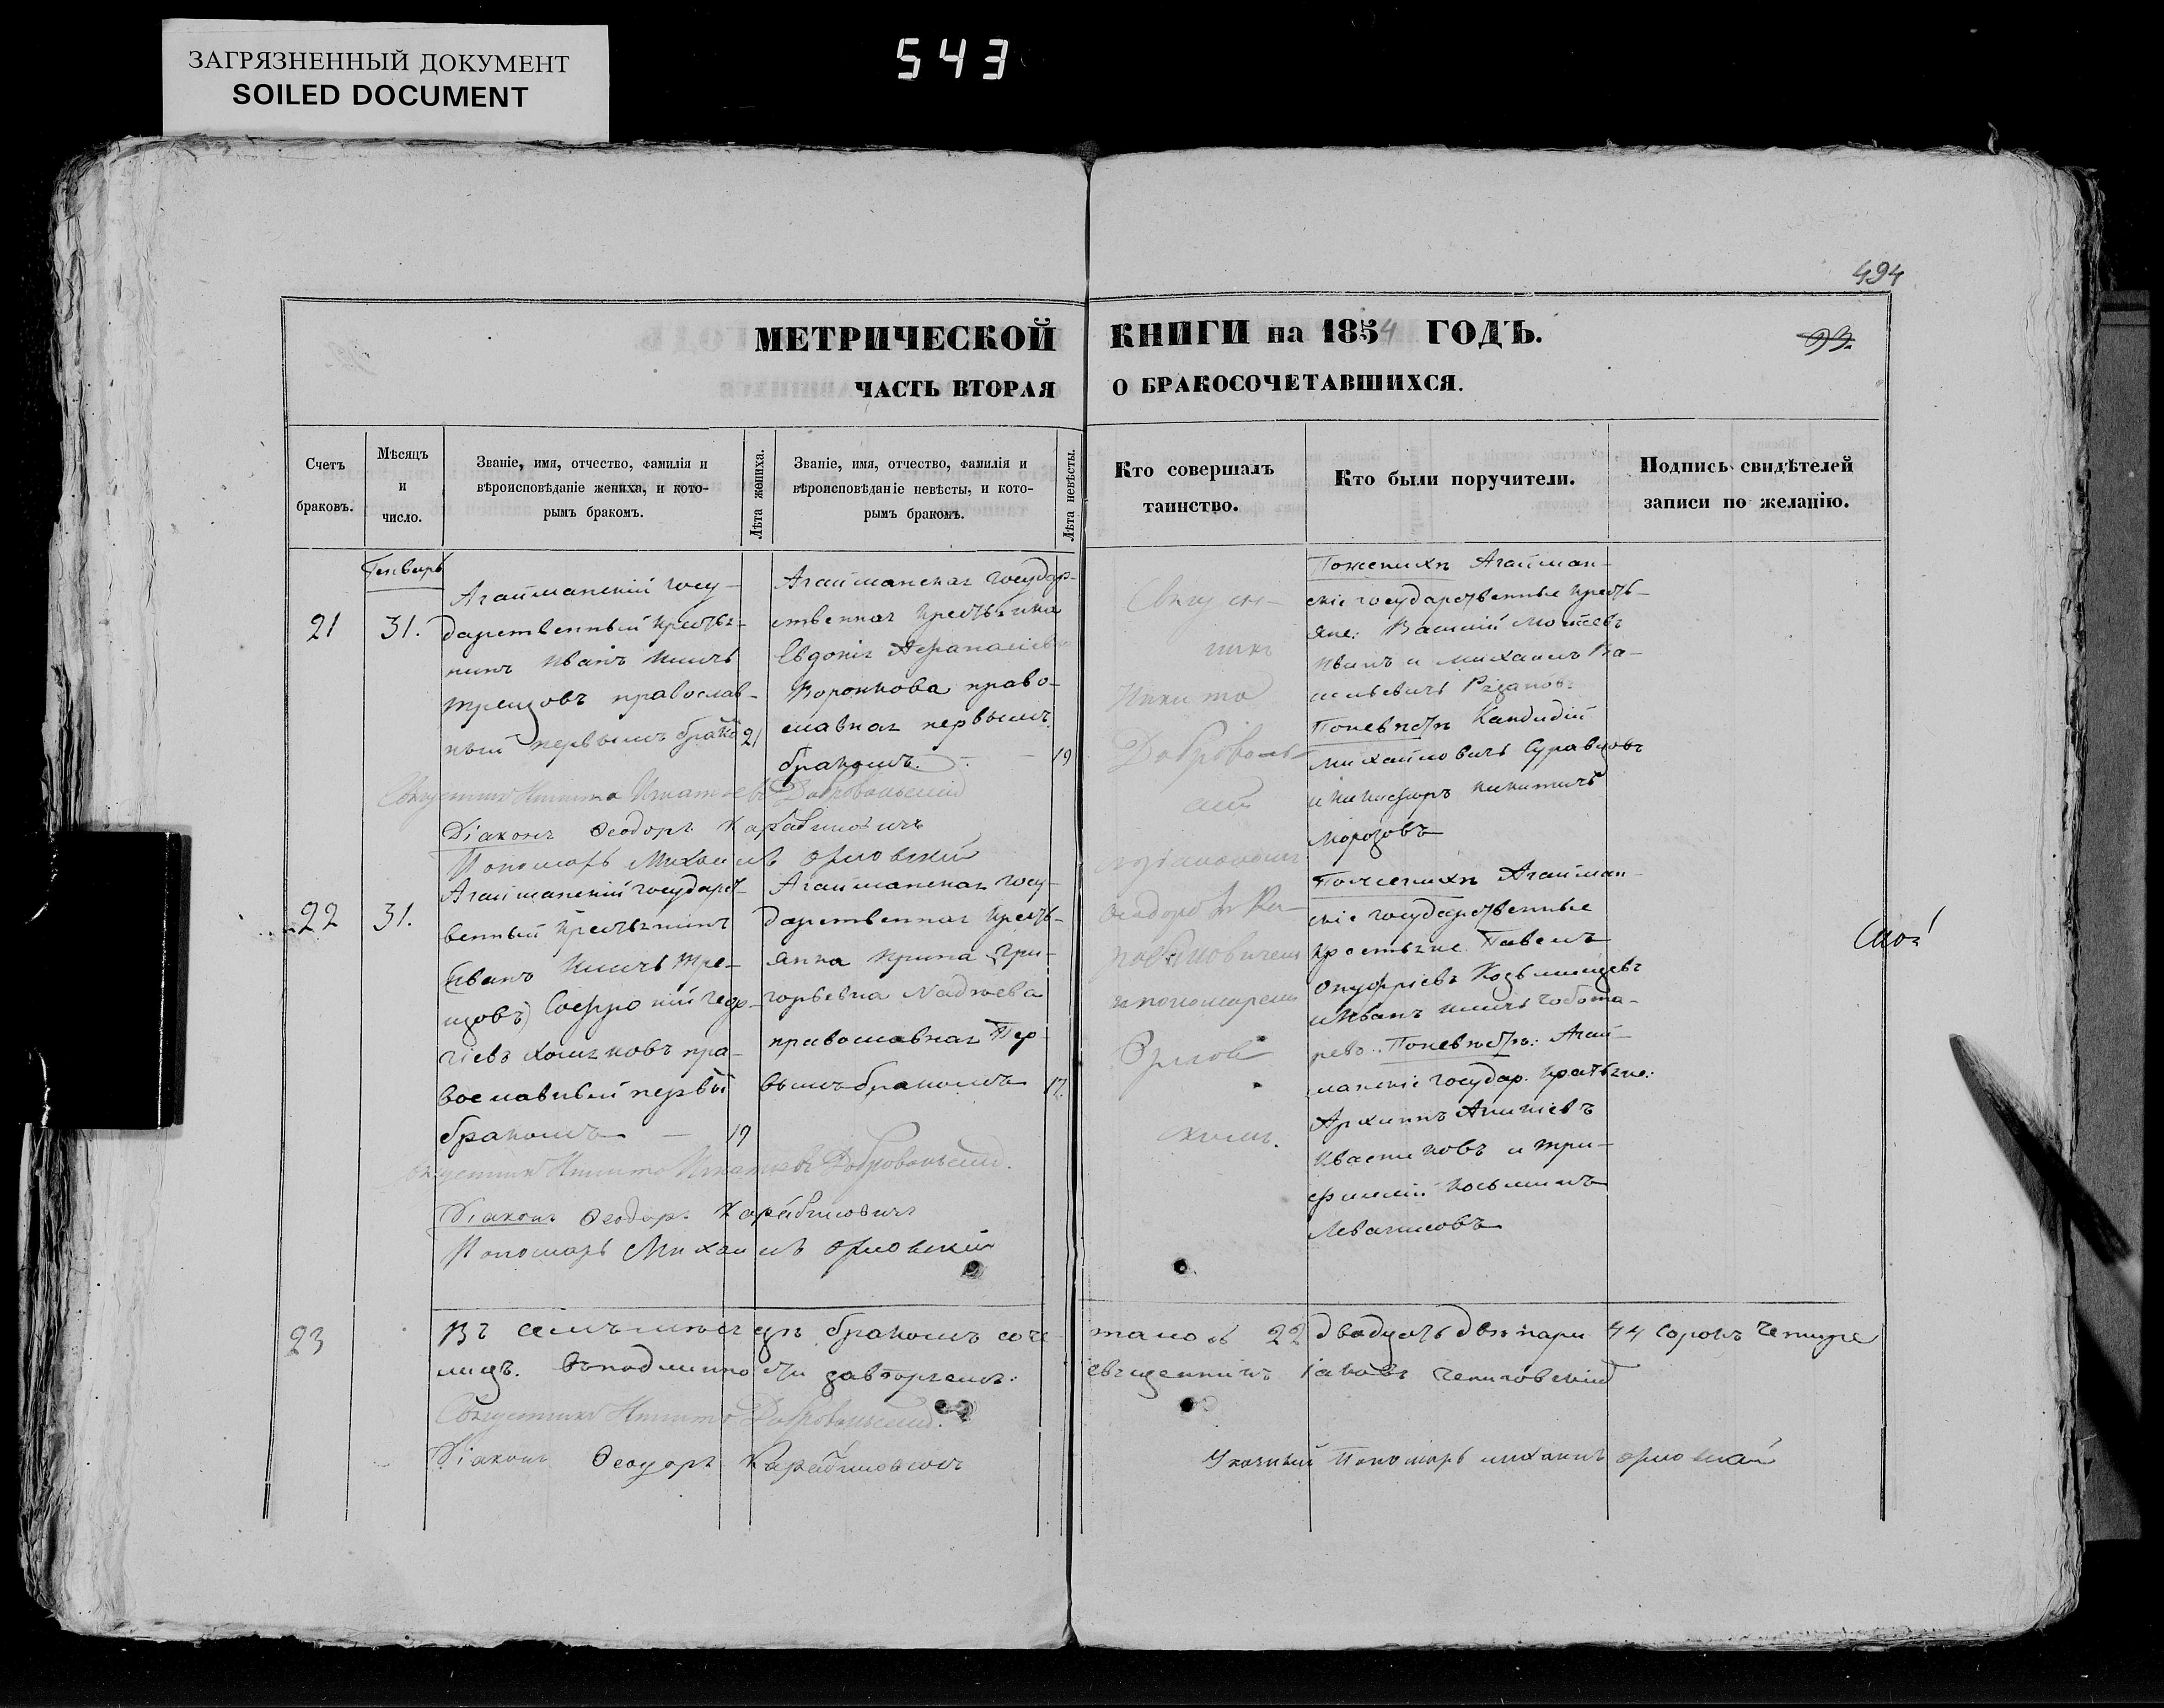 ЗАГРЯЗНЕННЫЙ ДОКУМЕНТ
SOILED DOCUMENT
543
494
МЕТРИЧЕСКОЙ КНИГИ на 1854 ГОДЪ.
93.
ЧАСТЬ ВТОРАЯ О БРАКОСОЧЕТАВШИХСЯ.
Счетъ
браковъ.
Мѣсяцъ
и
число.
Званіе, имя, отчество, фамилія и
вѣроисповѣданіе жениха, и кото-
рымъ бракомъ.
Лѣта жениха.
Званіе, имя, отчество, фамилія и
вѣроисповѣданіе невѣсты, и кото-
рымъ бракомъ.
Лѣта невѣсты.
Кто совершалъ
таинство.
Кто были поручители.
Подпись свидѣтелей
записи по желанію.
Генварь
21
31.
Агайманскій госу-
дарственный крестья-
нинъ Иванъ Ильичь
православ-
ный первымъ брако
21
Агайманская государ-
ственная крестьянка
Евдокія Афанасіевна
Воронкова право-
славная первымъ
бракомъ.
19
Священ-
никъ
Никита
Доброволь-
скій
съ діакономъ
Феодоромъ Ка-
рабиновичемъ
и пономаремъ
Орлов
скимъ.
По женихѣ Агайман-
скіе государственные кресть-
яне: Василій Моисеевъ
Ивинъ и Михаилъ Ва-
сильевичь Рязановъ.
По невѣстѣ Кандидій
Михайловичь Суравцовъ
и Никифоръ Никитичь
Морозовъ
Священникъ Никита Игнатьевъ Добровольскій
Діаконъ Феодоръ Карабиновичъ
Пономарь Михаилъ Орловскій
22
31.
Агайманскій государст-
венный крестьянинъ
(Иванъ Ильичь Тре-
щовъ) Софроній Геор-
гіевъ Хомяковъ пра-
вославный первы
бракомъ
19
Агайманская госу-
дарственная кресть-
янка Ирина Гри-
горьевна Надтоева
православная Пер-
вымъ бракомъ
17.
По женихѣ Агайман-
скіе государственные
крестьяне Павелъ
Онуфріевъ Козьминцевъ
и Иванъ Ильичь Чобота-
ревъ. По невѣстѣ: Агай-
манскіе государ. крестьяне:
Архипъ
Квасниковъ и Три-
филлій Козьминъ
Левашовъ
Священникъ Никита Игнатьевъ Добровольскій.
Діаконъ Феодоръ Карабиновичъ
Пономарь Михаилъ Орловскій
23
Въ семъ мѣсяцѣ бракомъ соче талось 22 двадцать двѣ пари 44 сорокъ четире
лицъ. Въ подлинно сти завѣряемъ: священникъ Іаковъ
Священникъ Никита Добровольскій.
Діаконъ Феодоръ Карабиновичъ
Указный Пономарь Михаилъ Орловскій